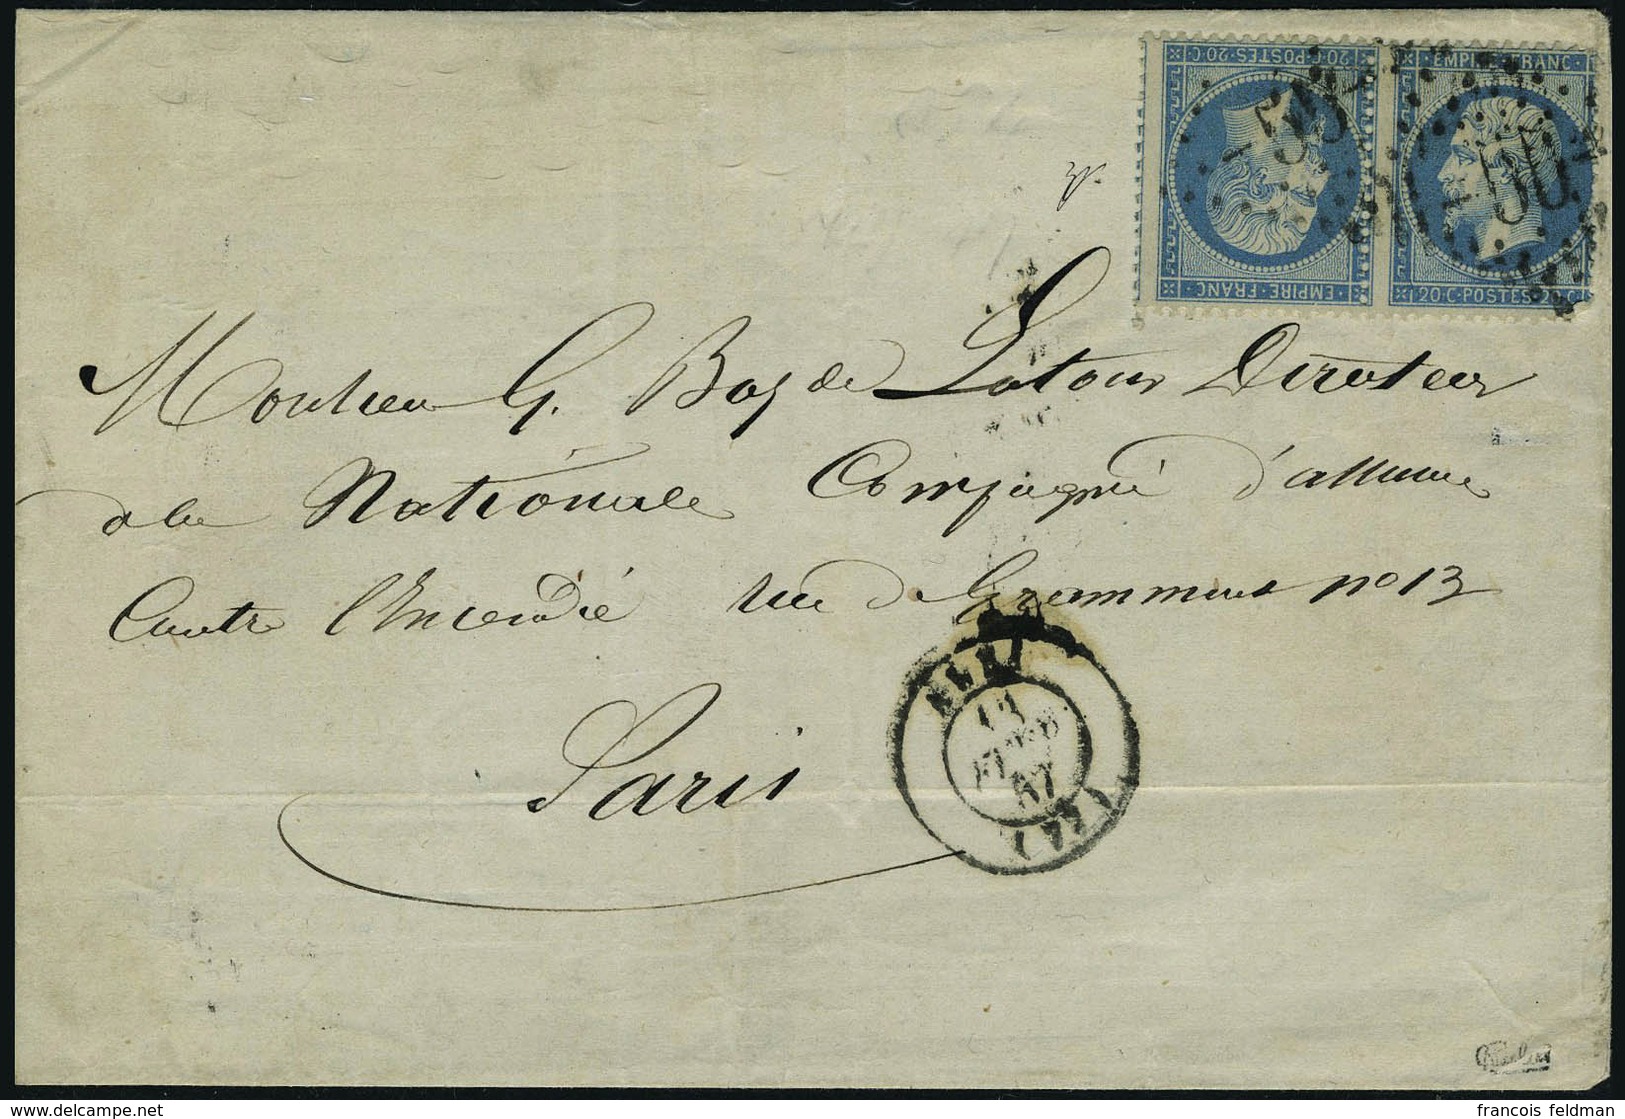 20·C·POSTES·20·C EMPIRE·FRANC·
EMPIRE·FRANC· 20·C·POSTES·20·C
Monsieur G. Boy de Latour Directeur
de la Nationale Compagnie d'assurance
Contre l'Incendie rue de Grammont no 13
Paris
13
FEVR
67
francois feldman